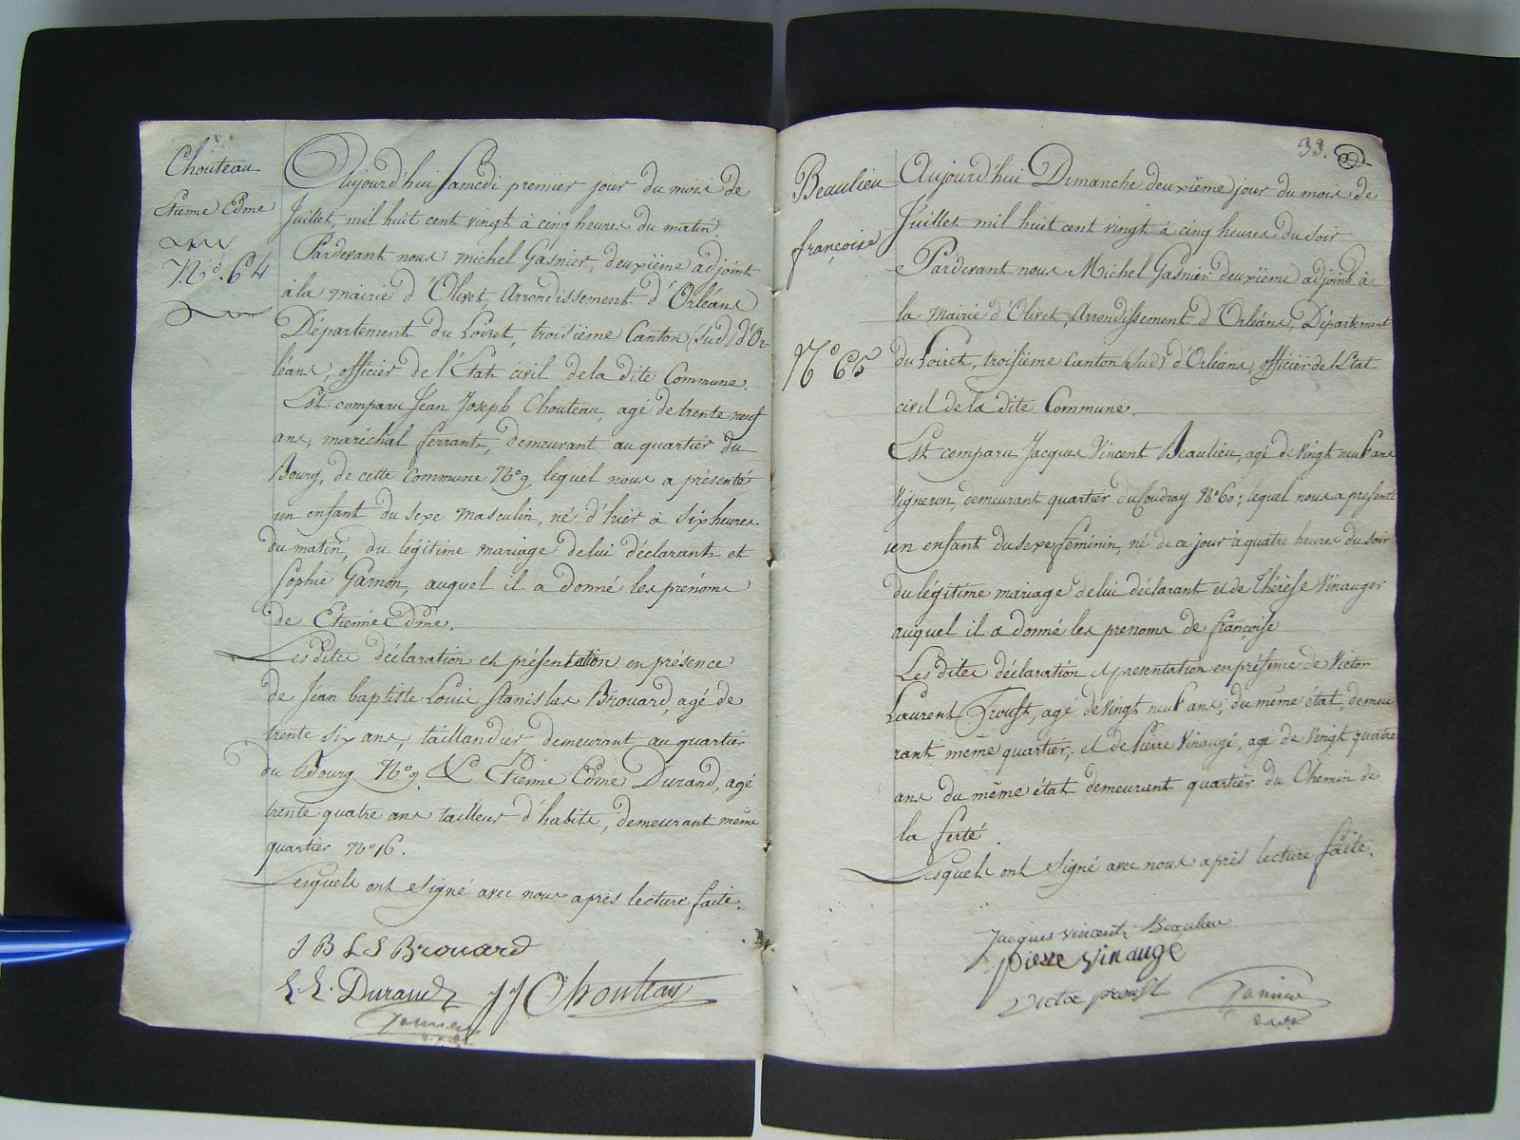 Chouteau
Etiene Edme
N.o 64
Aujourd'hui Samedi premier jour du mois de
Juillet, mil huit cent vingt à cinq heures du matin.
Pardevant nous michel Gasnier, deuxième adjoint
à la mairie d'Olivet, Arrondissement d'Orléans
Département du Loiret, troisième Canton (sud) d'Or-
léans, officier de l'État civil de la dite Commune.
Est comparu Jean Joseph Chouteau, agé de trente neuf
ans, maréchal ferrant, demeurant au quartier du
Bourg, de cette Commune No 9, lequel nous a présenté
un enfant du sexe masculin, né d'hier à six heures
du matin, du légitime mariage de lui déclarant et
Sophie Garnon, auquel il a donné les prénoms
de Etienne Edme.
Les dites déclaration et présentation en présence
de Jean baptiste Louis Stanislas Brouard, agé de
trente six ans, taillandier demeurant au quartier
du Bourg No 9. & Etiene Edme Durand, agé
trente quatre ans tailleur d'habits, demeurant même
quartier No 16.
Lesquels ont signé avec nous après lecture faite.
J B L S Brouard
E. E. Durand JJ Chouteau
Gasnier
33.
Beaulieu
françoise
No 65
Aujourd'hui Dimanche deuxième jour du mois de
Juillet mil huit cent vingt à cinq heures du soir
Pardevant nous Michel Gasnier deuxième adjoint à
la Mairie d'Olivet, Arrondissement d'Orléans, Département
du Loiret, troisième Canton (sud) d'Orléans, officier de l'Etat
civil de la dite Commune.
Est comparu Jacques Vincent Beaulieu, agé de vingt neuf ans
vigneron, demeurant quartier du Coudray No 60; lequel nous a présenté
un enfant du sexe féminin, né de ce jour à quatre heures du soir
du légitime mariage de lui déclarant et de Thérèse Vinauger
auquel il a donné les prenoms de françoise
Les dites déclaration et presentation en présence de Victor
Laurent Proust, agé de vingt neuf ans, du même état, demeu
rant même quartier, et de Pierre Vinaugé, agé de vingt quatre
ans du même état demeurant quartier du Chemin de
la ferté.
Lesquels ont signé avec nous après lecture faite.
Jacques vincent Beaulieu
pierre vinauge
Victor proust Gasnier